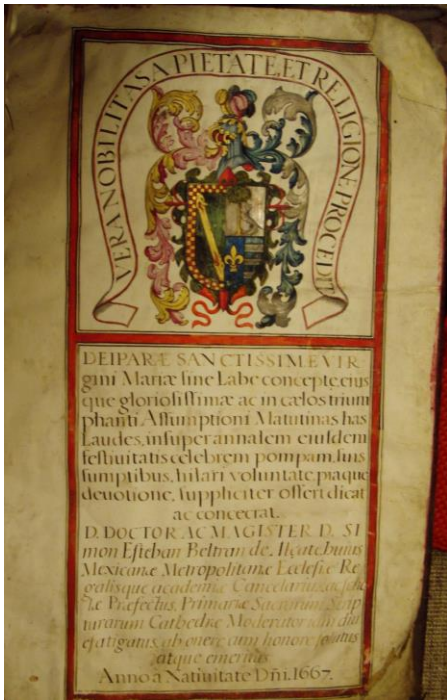 VERA NOBILITAS A PIETATE, ET RELIGIONE PROCEDIT
DEIPARÆ SANCTISSIM.E VIR
gini Mariæ sine Labe concepte, eius
que gloriosissimæ ac in cælos trium
phanti Assumptioni Matutinas has
Laudes, insuper annalem eiusdem
festiuitatis celebrem pompam, suis
sumptibus, hilari voluntate, piaque
deuotione, suppliciter offert dicat
ac concecrat.
D. DOCTOR, AC MAGISTER D. SI
mon Esteban Beltran de Alzate huius
Mexicanæ Metropolitanæ Ecclesiæ Re
galisque academiæ Cancelarius, ac scho
læ Præfectus, Primariæ Sacrorum Scrip
turarum Cathedræ Moderator iam diu
efatigatus, ab onere cum honore solutus
atque emeritus
Anno a Natiuitate Dñi. 1667.